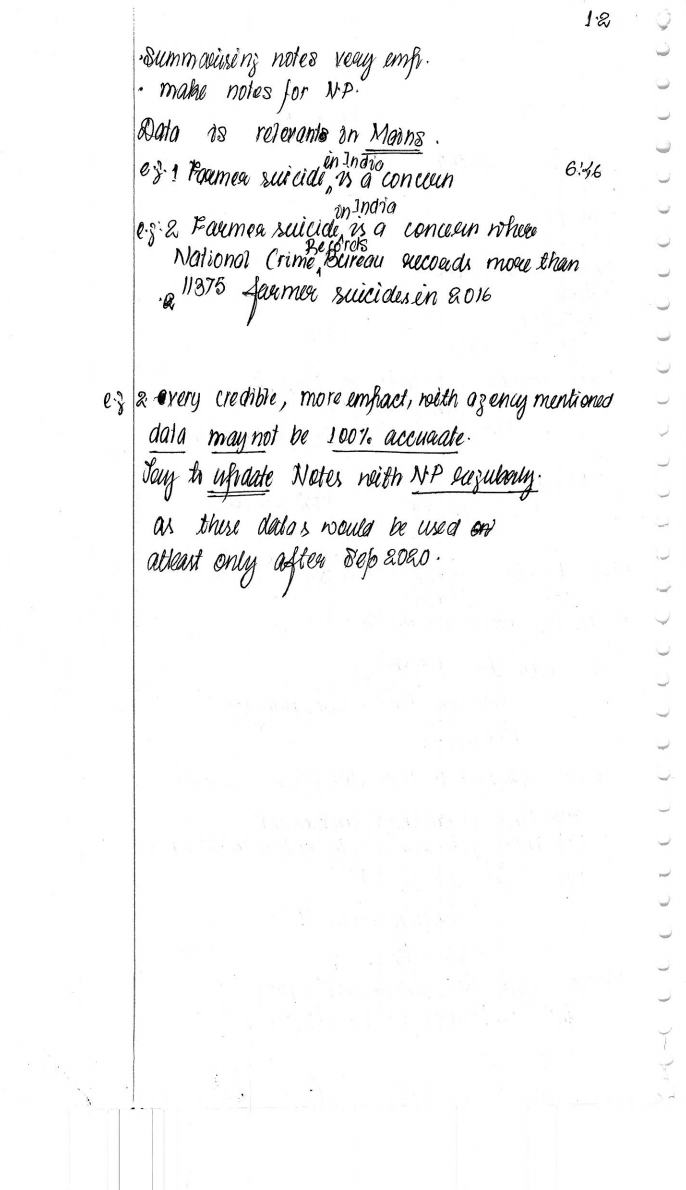 1.2
· Summarising notes very imp.
· make notes for NP.
Data is relevants in Mains.
e.g. 1 Farmer suicide in India is a concern 6:46
e.g. 2 Farmer suicide in India is a concern where
National Crime Records Bureau records more than
11375 farmer suicides in 2016
e.g 2 very credible, more impact, with agency mentioned
data may not be 100% accurate.
Try to update Notes with NP regularly.
as these datas would be used
atleast only after Sep 2020.